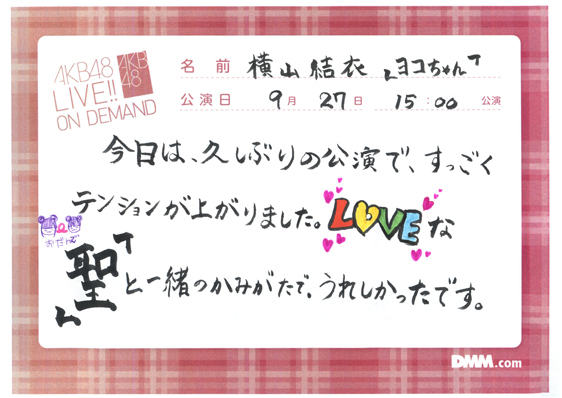 AKB48
LIVE!!
ON DEMAND
AKB
48
名前 横山結衣 「ヨコちゃん」
公演日 9月 27日 15:00 公演
今日は、久しぶりの公演で、すっごく
テンションが上がりました。LOVEな
おだんご
「聖」と一緒のかみがたで、うれしかったです。
DMM.com